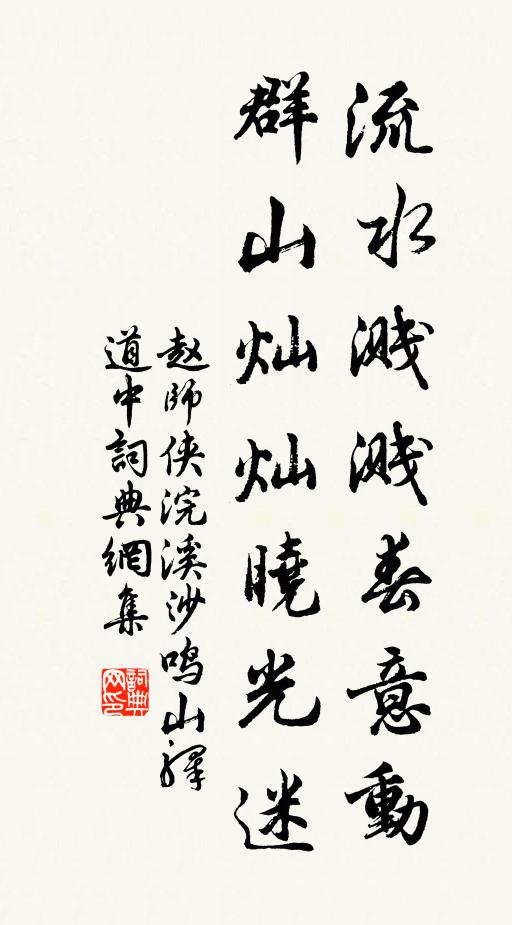 流水溅溅春意動
群山灿灿曉光迷
赵師侠浣溪沙鸣山驛
道中詞典網集
詞典网印